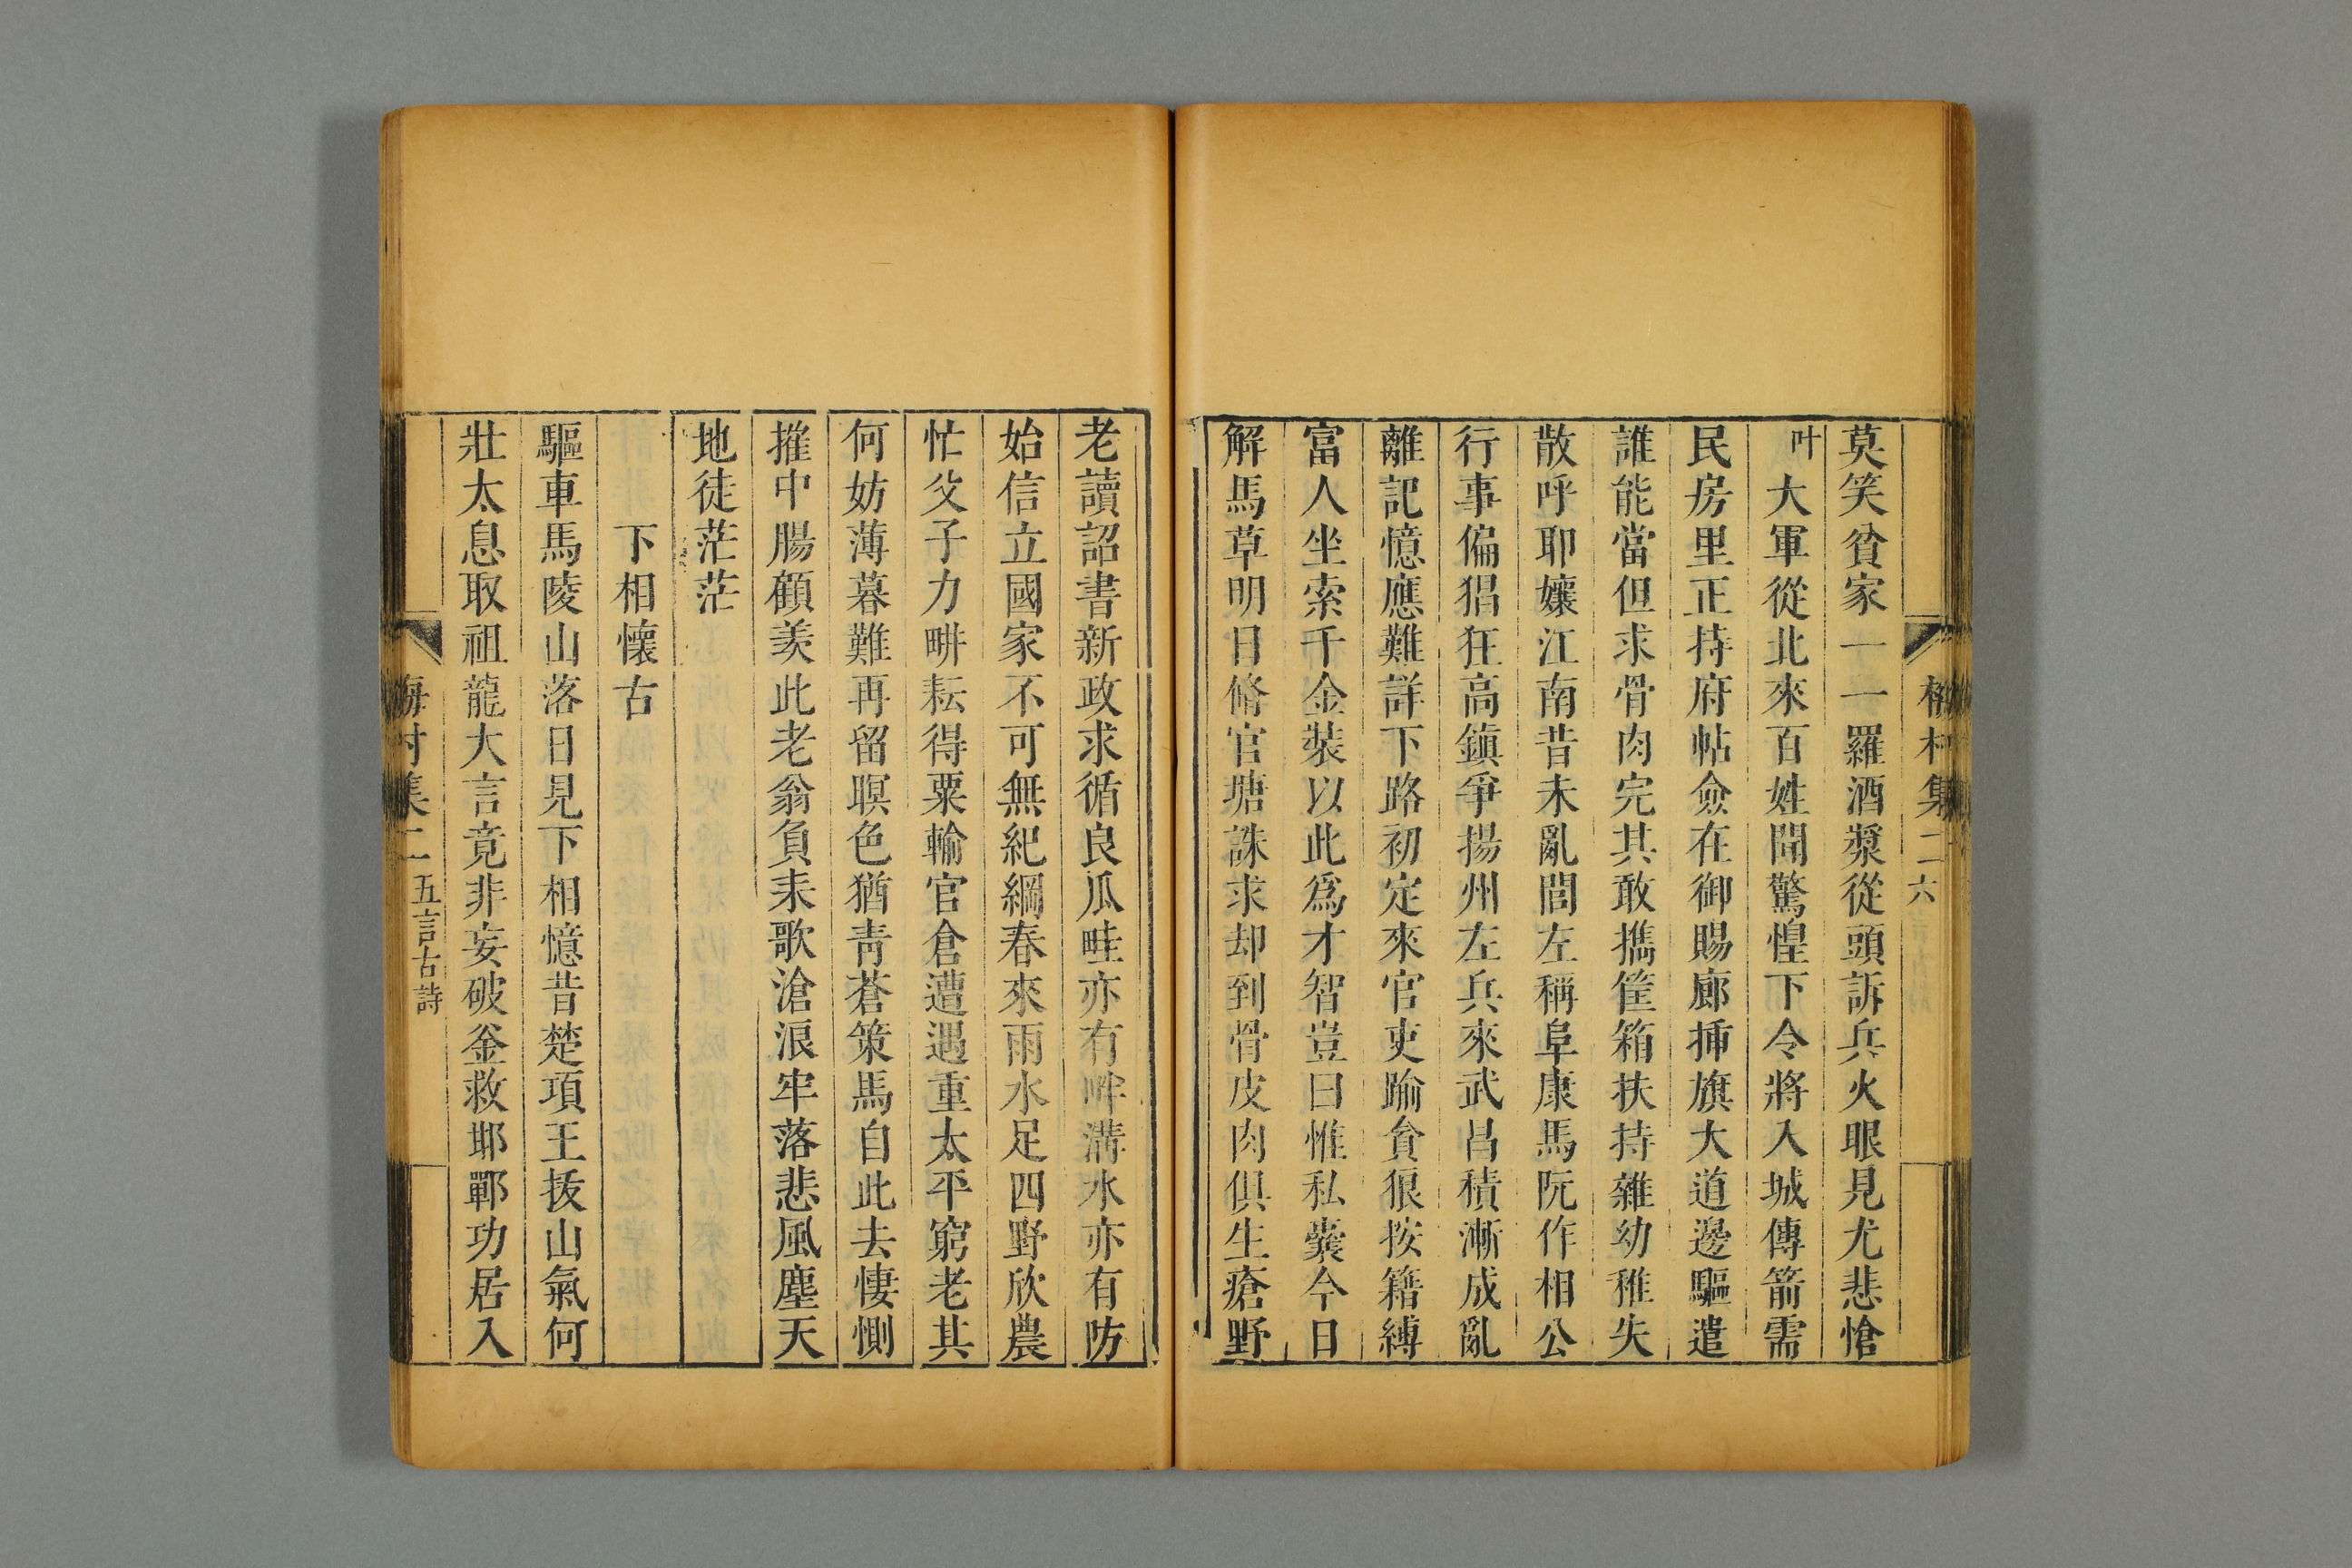 梅村集二 六
莫笑貧家一一羅酒漿從頭訴兵火眼見尤悲愴
叶大軍從北來百姓聞驚惶下令將入城傳箭需
民房里正持府帖僉在御賜廊揷旗大道邊驅遣
誰能當但求骨肉完其敢攜筐箱扶持雜幼稚失
散呼耶孃江南昔未亂閭左稱阜康馬阮作相公
行事偏猖狂高鎮爭揚州左兵來武昌積漸成亂
離記憶應難詳下路初定來官吏踰貪狼按籍縛
富人坐索千金裝以此為才智豈曰惟私囊今日
解馬草明日脩官塘誅求却到骨皮肉俱生瘡野
老讀詔書新政求循良瓜畦亦有畔溝水亦有防
始信立國家不可無紀綱春來雨水足四野欣農
忙父子力畊耘得粟輸官倉遭遇重太平窮老其
何妨薄暮難再留暝色猶靑蒼策馬自此去悽惻
摧中腸顧羨此老翁負耒歌滄浪牢落悲風塵天
地徒茫茫
下相懷古
驅車馬陵山落日見下相憶昔楚項王拔山氣何
壯太息取祖龍大言竟非妄破釜救邯鄲功居入
梅村集二 五言古詩